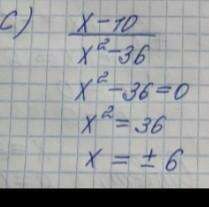 c) x-10
x²-36
x²-36=0
x²=36
x = ± 6